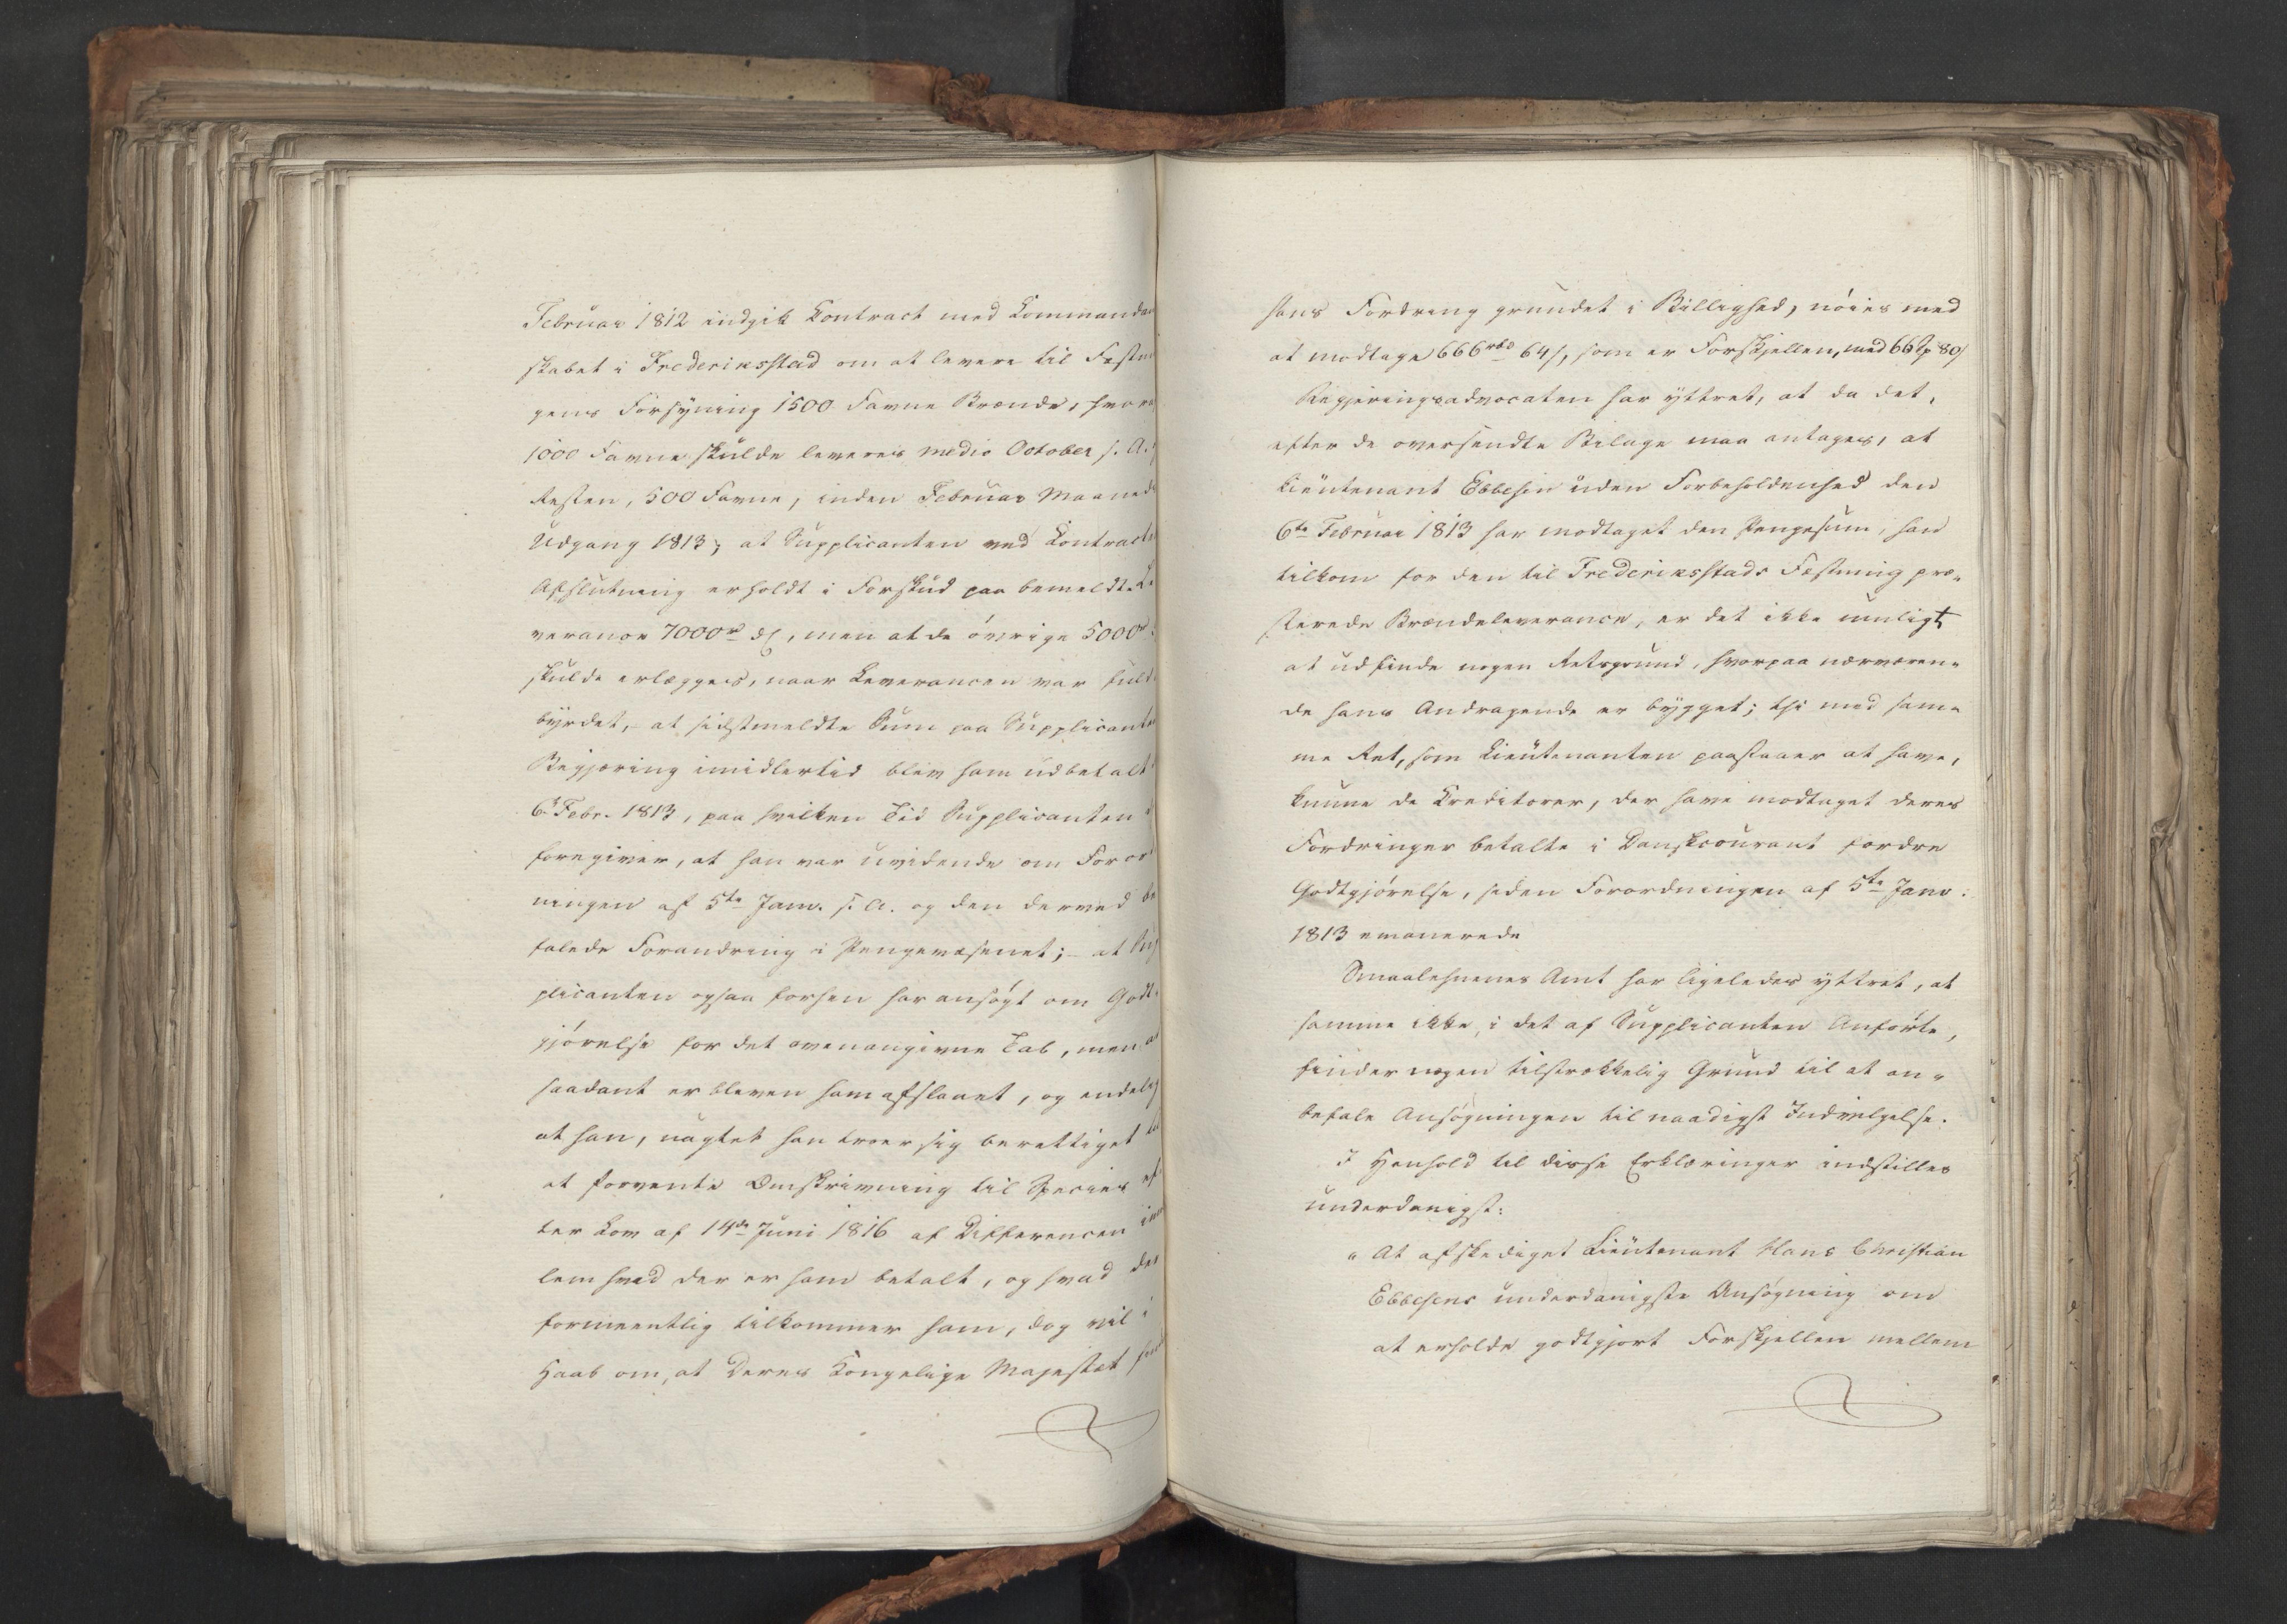 Februar 1812 indgik Contract med Commandan
skabet i Frederiksstad om at levere til Fæstni
gens Forsyning 1500 Favne Brænde, hvor
1000 Favne skulde leveres medio October s. A.
Resten, 500 Favne, inden Februar Maaneds
Udgang 1813; at Supplicanten ved Contracts
Afslutning erholdt i Forskud paa bemeldte Le
verance 7000 rd DC, men at de øvrige 5000 rd
skulde erlægges, naar Leverancen var fuld
byrdet, - at sidstmeldte Sum paa Supplicante
Begjæring imidlertid blev ham udbetalt
6te Febr. 1813, paa hvilken Tid Supplicanten
foregiver, at han var uvidende om Foror
ningen af 5te Janv. s. A. og den derved be
falede Forandring i Pengevæsenet; - at Sup
plicanten ogsaa forhen har ansøgt om Godt
gjørelse for det ovenangivne Tab, men at
saadant er bleven ham afslaaet, og endelig
at han, uagtet han troer sig berettiget til
at forvente Omskrivning til Species ef
ter Lov af 14de Juni 1816 af Differencen im
lem hvad der er ham betalt, og hvad der
formeentlig tilkommer ham, dog vil i
Haab om, at Deres Kongelige Majestæt
hans Fordring grundet i Billighed, nøies med
at modtage 666 rbd 64 s, som er Forskjellen, med 66 Sp 80 s
Regjeringsadvocaten har yttret, at da det,
efter de oversendte Bilage maa antages, at
Lieutenant Ebbesen uden Forbeholdenhed den
6te Februar 1813 har modtaget den Pengesum, han
tilkom for den til Frederiksstads Fæstning præ-
sterede Brændeleverance, er det ikke muligt
at udfinde nogen Retsgrund, hvorpaa nærværen-
de hans Andragende er bygget; thi med sam-
me Ret, som Lieutenanten paastaaer at have,
kunne de Creditorer, der have modtaget deres
Fordringer betalte i Danskcourant fordre
Godtgjørelse, siden Forordningen af 5te Janv:
1813 emanerede
Smaalehnenes Amt har ligeledes yttret, at
samme ikke, i det af Supplicanten Anførte,
finder nogen tilstrækkelig Grund til at an-
befale Ansøgningen til naadigst Indvilgelse.
I Henhold til disse Erklæringer indstilles
underdanigst:
" At afskediget Lieutenant Hans Christian
Ebbesens underdanigste Ansøgning om
at erholde godtgjort Forskjellen mellem